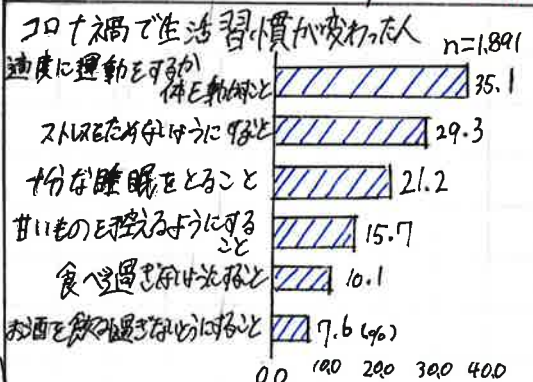 コロナ禍で生活習慣が変わった人
n=1,891
適度に運動をするか
体を動かすこと
35.1
ストレスをためないようにすること
29.3
十分な睡眠をとること
21.2
甘いものを控えるようにする
こと
15.7
食べ過ぎないようにすること
10.1
お酒を飲み過ぎないようにすること
7.6(%)
0.0 10.0 20.0 30.0 40.0